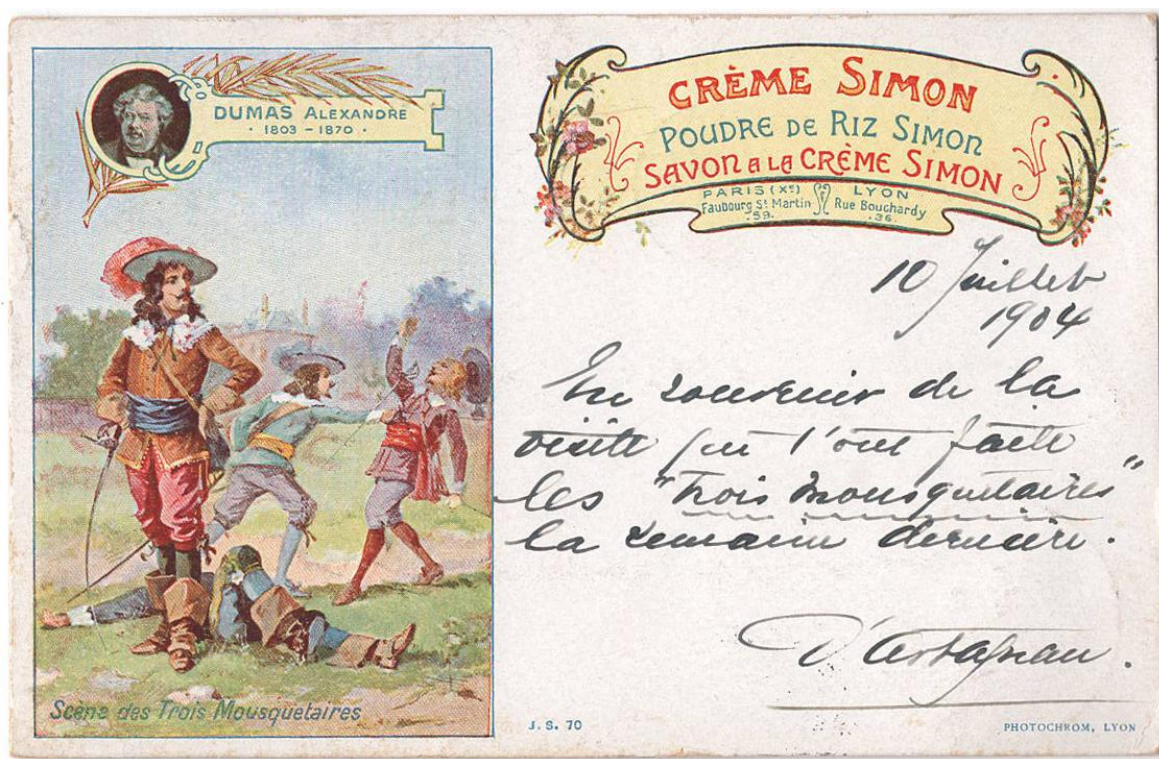 DUMAS ALEXANDRE
· 1803 – 1870 ·
CRÈME SIMON
POUDRE DE RIZ SIMON
SAVON A LA CRÈME SIMON
PARIS (Xe) LYON
Faubourg St Martin Rue Bouchardy
.59. .36.
10 Juillet
1904
En souvenir de la
visite que t'ont faite
les "Trois Mousquetaires"
la semaine dernière.
D'Artagnan.
Scène des Trois Mousquetaires
J. S. 70
PHOTOCHROM, LYON